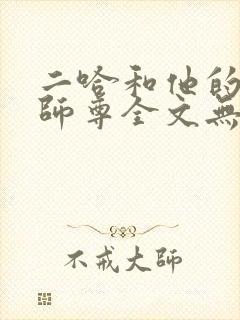 二哈和他的
师尊全文無
不戒大师